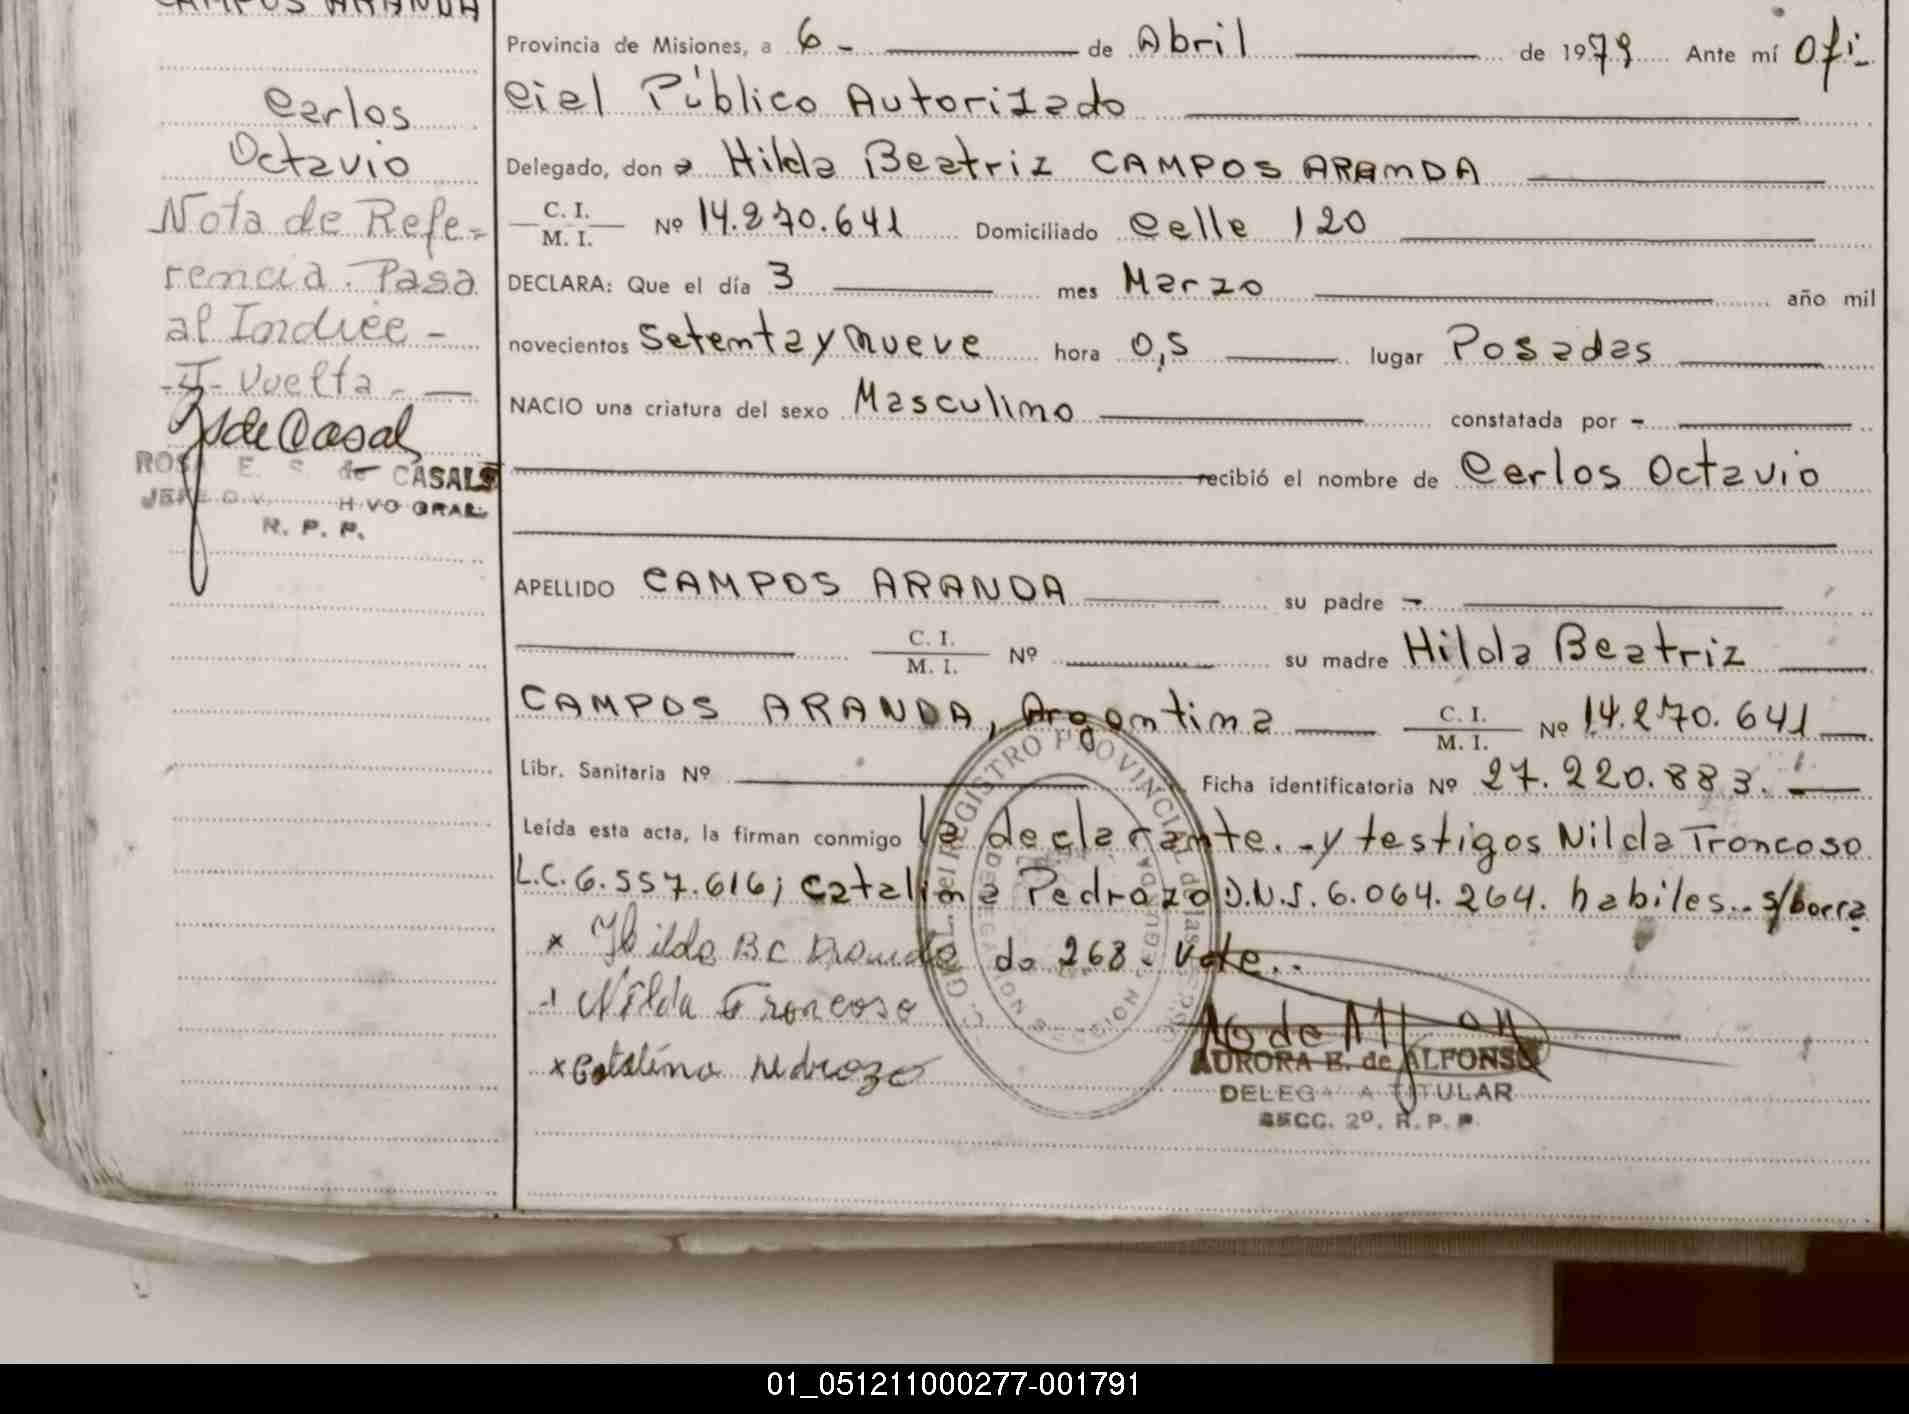 CAMPOS ARANDA
Carlos
Octavio
Nota de Refe=
rencia. Pasa
al Indice -
-II- Vuelta. -
de Casal
ROSA E. S. de CASALS
JEFE DIV. H VO GRAL.
R. P. P.
Provincia de Misiones, a 6 - de Abril de 1979 Ante mí Ofi-
cial Público Autorizado
Delegado, don a Hilda Beatriz CAMPOS ARANDA
C. I.
M. I. Nº 14.270.641 Domiciliado Calle 120
DECLARA: Que el día 3 mes Marzo año mil
novecientos Setenta y nueve hora 0,5 lugar Posadas
NACIO una criatura del sexo Masculino constatada por -
recibió el nombre de Carlos Octavio
APELLIDO CAMPOS ARANDA su padre -
C. I.
M. I. Nº su madre Hilda Beatriz
CAMPOS ARANDA, Argentina C. I.
M. I. Nº 14.270.641
Libr. Sanitaria Nº Ficha identificatoria Nº 27.220.883.
Leída esta acta, la firman conmigo la declarante.-y testigos Nilda Troncoso
L.C. 6.557.616; Catalina Pedrozo D.N.I. 6.064.264. habiles.. s/borra
do 268. Vale..
x Hilda B C Aranda
Nilda Troncoso
x Catalina Pedrozo
GRAL. del REGISTRO PROVINCIAL de las
AURORA E. de ALFONSO
DELEGADA TITULAR
SECC. 2º. R. P. P.
01_051211000277-001791